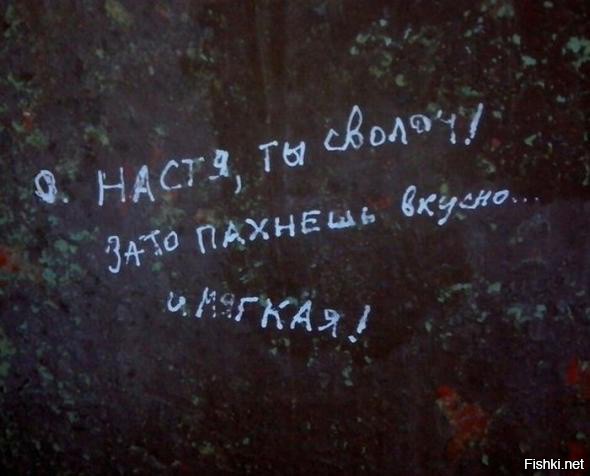 О. НАСТЯ, ТЫ СВОЛОЧ!
ЗАТО ПАХНЕШЬ ВКУСНО...
И МЯГКАЯ!
Fishki.net